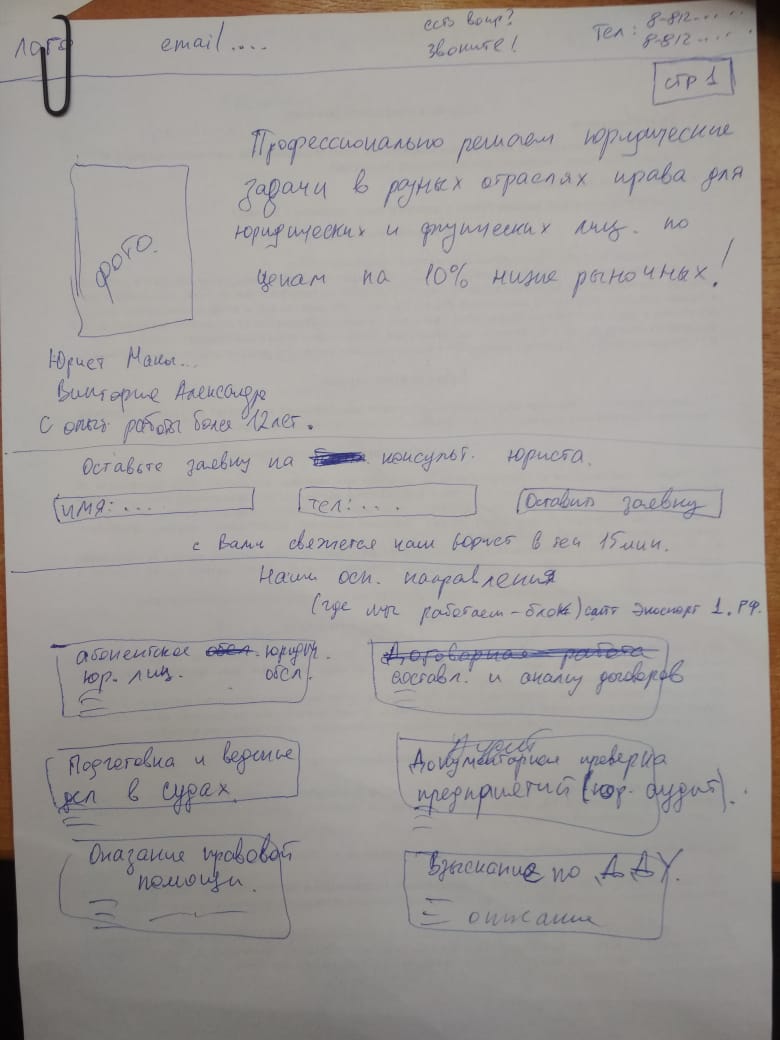 лого
email....
есть вопр?
звоните!
Тел: 8-812.....
8-812.....
стр 1
Профессионально решаем юридические
задачи в разных отраслях права для
юридических и физических лиц. по
ценам на 10% ниже рыночных!
фото.
Юрист
Виктория Александр
с опыт работы более 12 лет.
Оставьте заявку на консульт. юриста.
имя: ...
тел: ...
Оставить заявку
с Вами свяжется наш юрист в теч 15 мин.
Наши осн. направления
(где мы работаем - блок) сайт Экоспорт 1.РФ.
абонентское юридич.
юр. лиц. обсл.
Договорная работа
составл. и анализ договоров
Подготовка и ведение
дел в судах.
Аудит
Документарная проверка
предприятий (юр. аудит).
Оказание правовой
помощи.
Взыскание по ДДУ.
описание